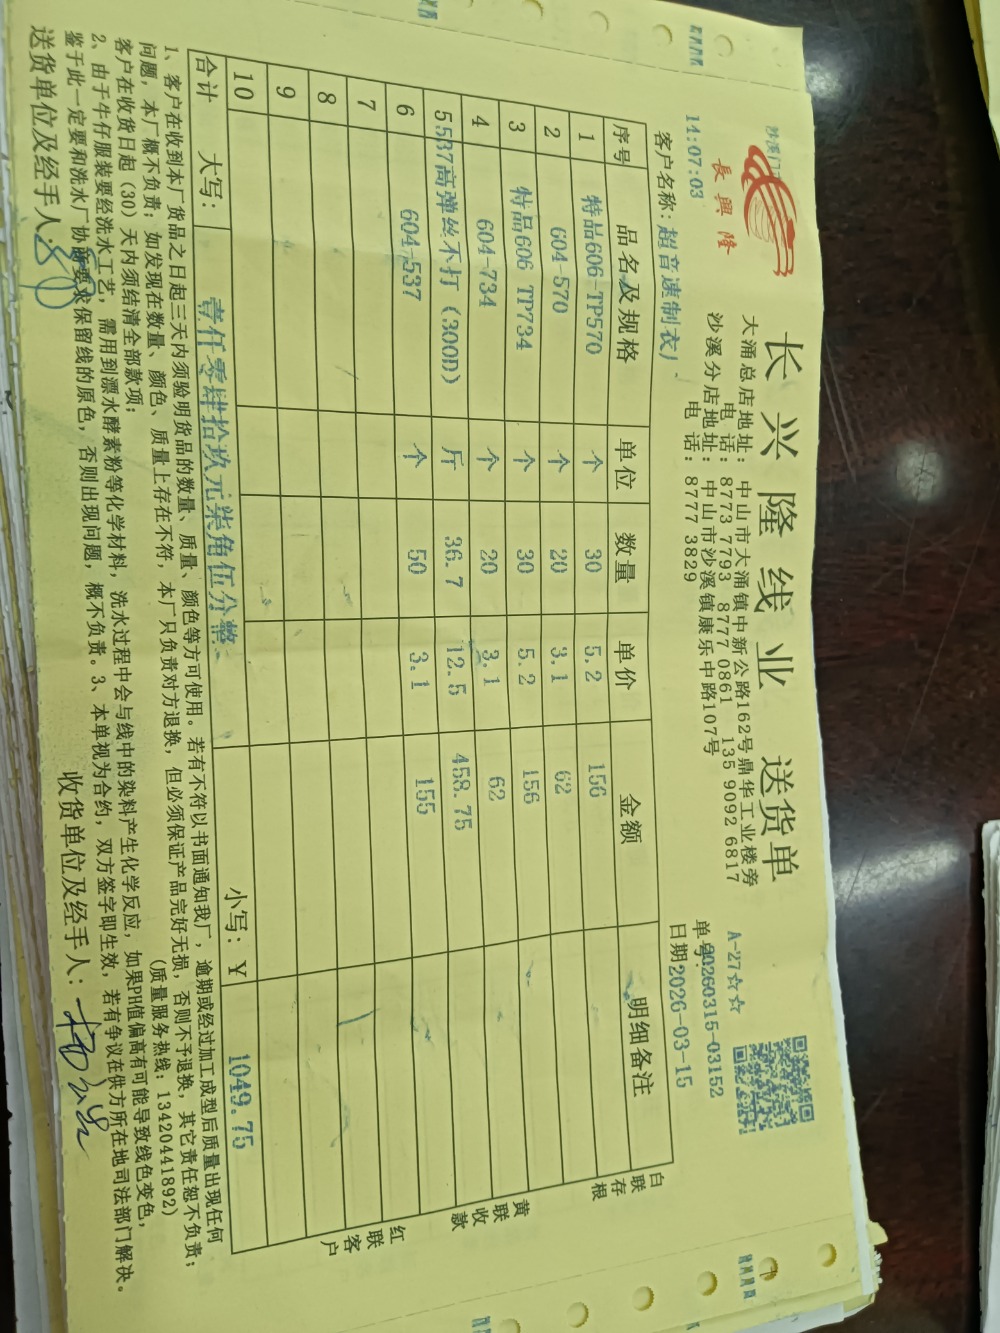 沙溪门
長興隆
长兴隆线业 送货单
大涌总店地址：中山市大涌镇中新公路162号鼎华工业楼旁
电话：8773 7793 8777 0861 135 9092 6817
沙溪分店地址：中山市沙溪镇康乐中路107号
电话：8777 3829
A-27☆☆
14:07:03
单号:20260315-03152
客户名称：超音速制衣厂
日期2026-03-15
序号 品名及规格 单位 数量 单价 金额 明细备注
1 特品606-TP570 个 30 5.2 156
2 604-570 个 20 3.1 62
3 特品606 TP734 个 30 5.2 156
4 604-734 个 20 3.1 62
5 537高弹丝不打（300D） 斤 36.7 12.5 458.75
6 604-537 个 50 3.1 155
7
8
9
10
合计 大写：壹仟零肆拾玖元柒角伍分整 小写：¥ 1049.75
白联存根
黄联收款
红联客户
1、客户在收到本厂货品之日起三天内须验明货品的数量、质量、颜色等方可使用。若有不符以书面通知我厂，逾期或经过加工成型后质量出现任何
问题，本厂概不负责；如发现在数量、颜色、质量上存在不符，本厂只负责对方退换，但必须保证产品完好无损，否则不予退换，其它责任恕不负责；
客户在收货日起（30）天内须结清全部款项；
（质量服务热线：13420441892）
2、由于牛仔服装要经洗水工艺，需用到漂水酵素粉等化学材料，洗水过程中会与线中的染料产生化学反应，如果PH值偏高有可能导致线色变色，
鉴于此一定要和洗水厂协商要求保留线的原色，否则出现问题，概不负责。3、本单视为合约，双方签字即生效，若有争议在供方所在地司法部门解决。
送货单位及经手人：
收货单位及经手人：